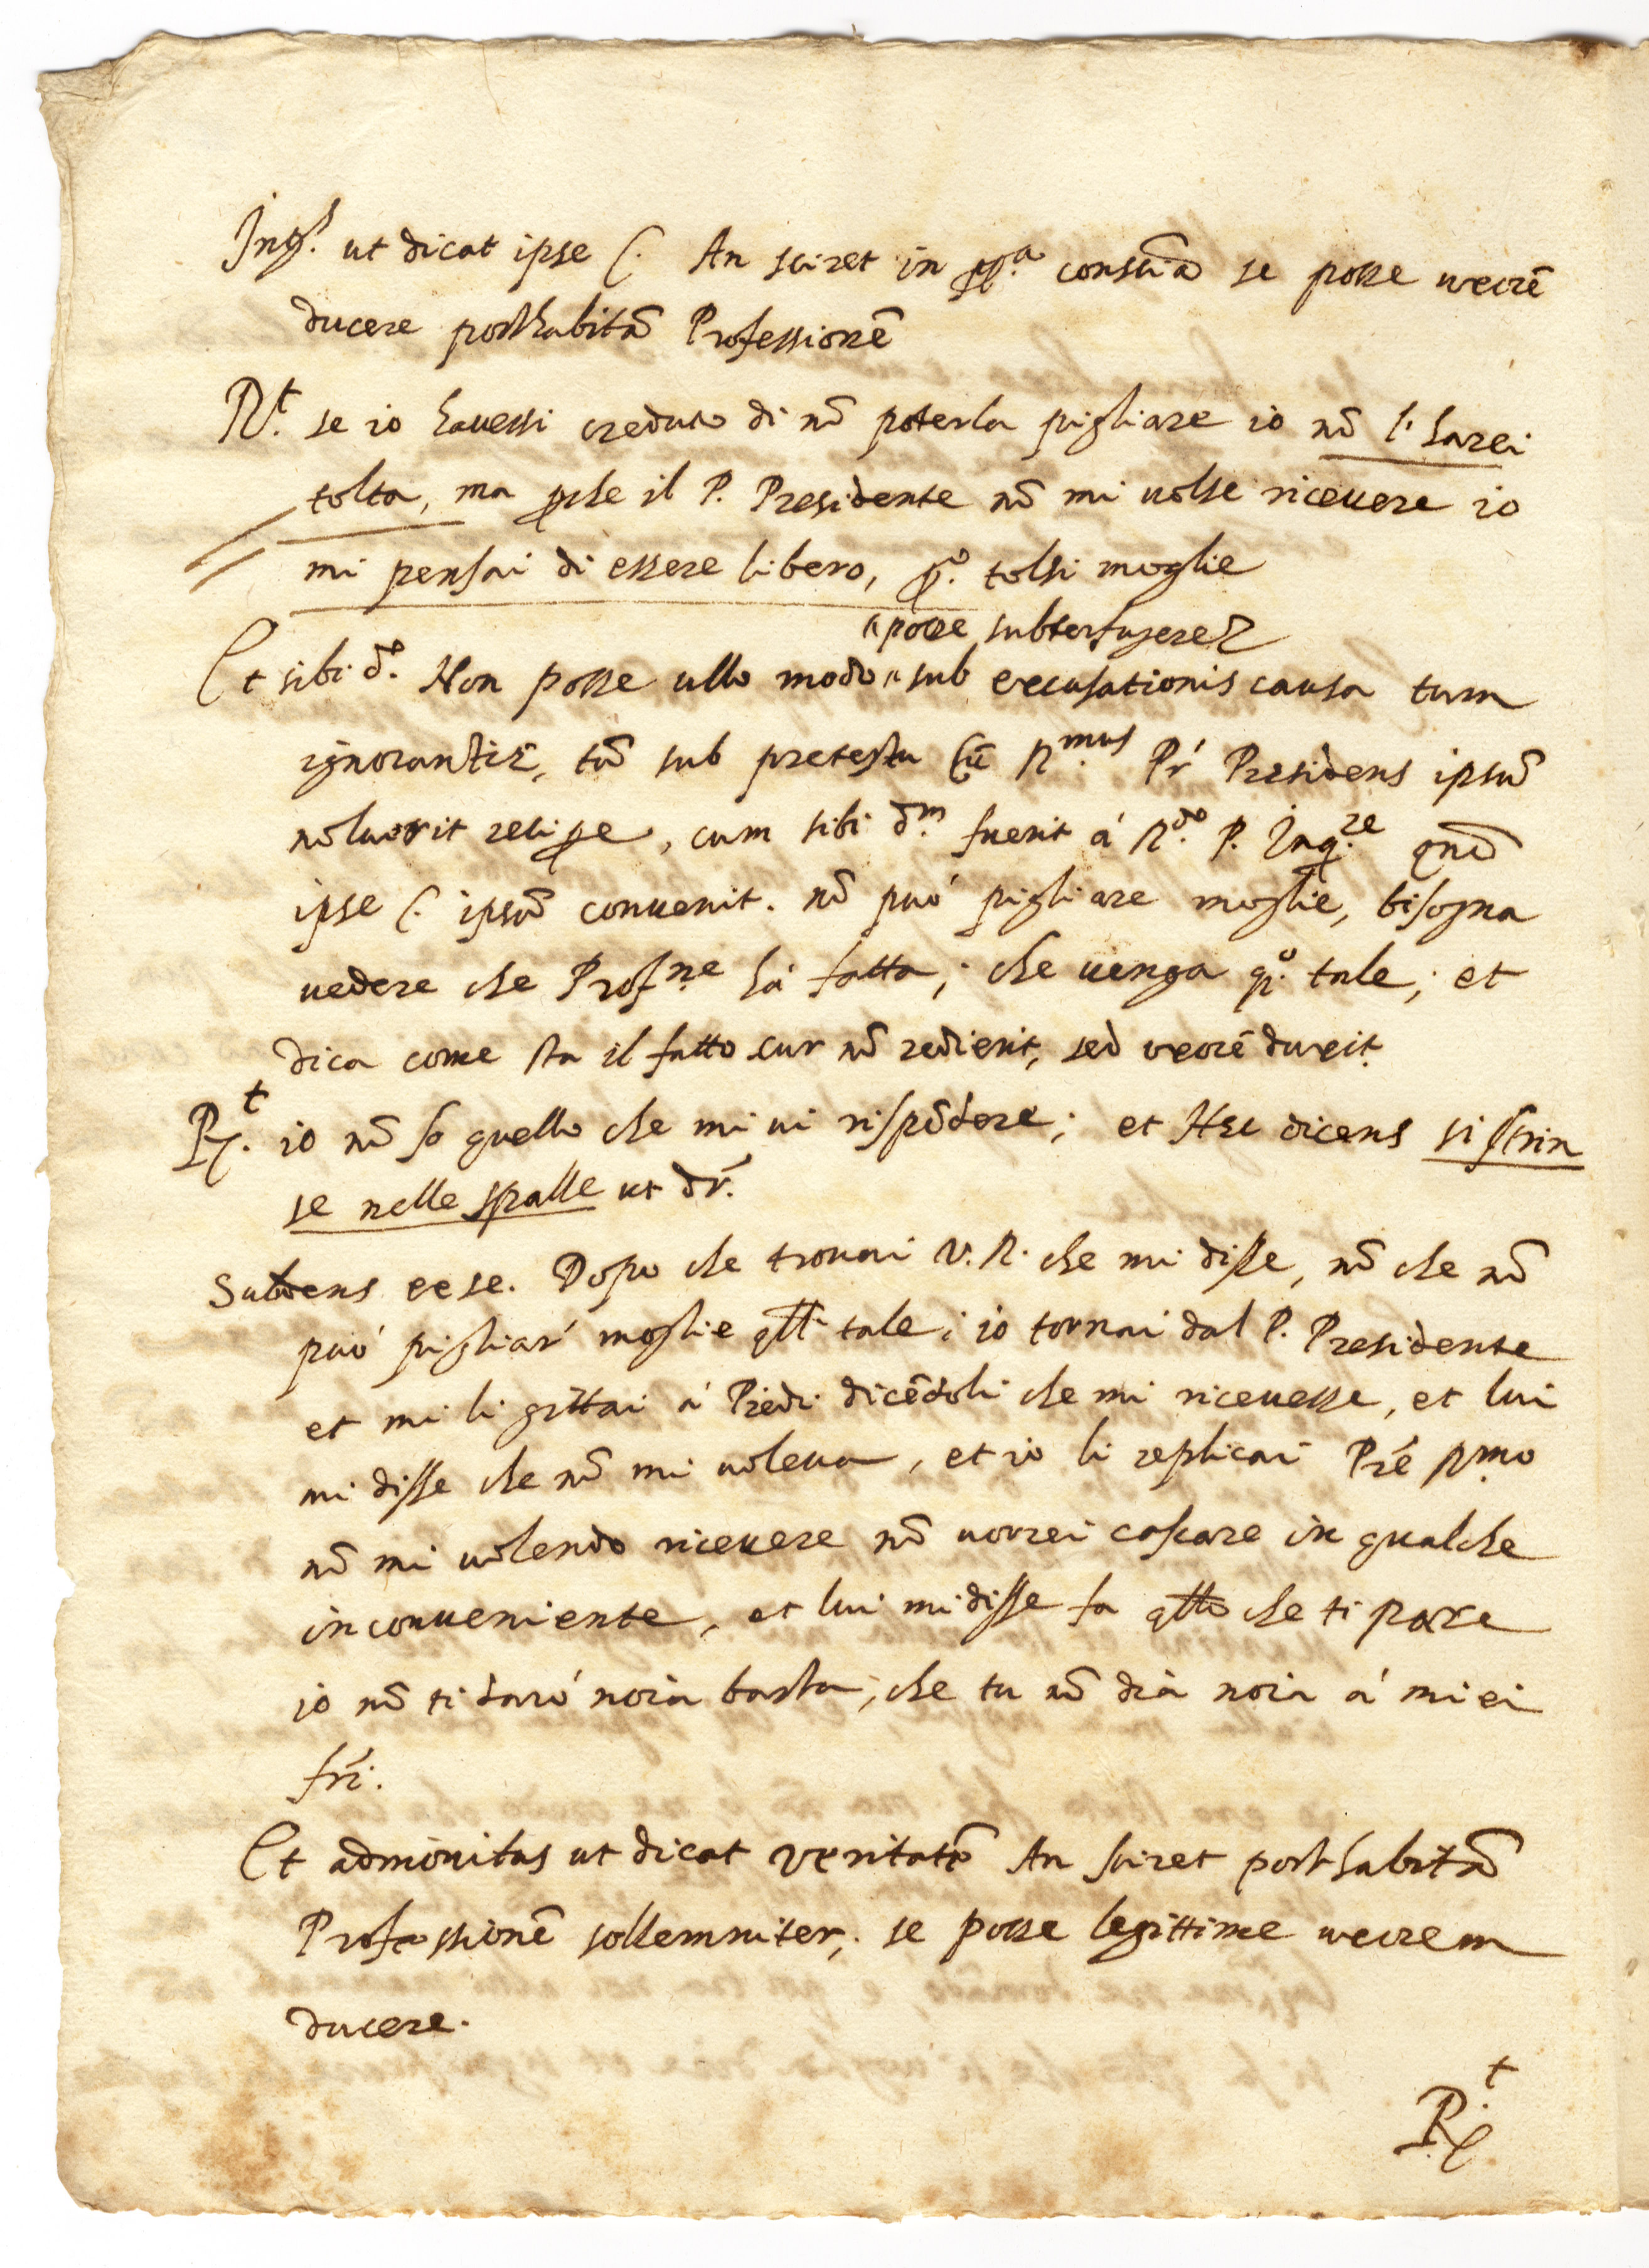 Ingˢ. ut dicat ipse C. An sciret in ꝓᵃ consciā se posse uxorē
ducere post habitā Professionē
Rᵗ. se io hauessi creduto di nō poterla pigliare io nō l'harei
tolta, ma ꝑche il P. Presidente nō mi uolse riceuere io
mi pensai di essere libero, ꝑº. tolsi moglie
posse subterfugere
Et sibi dº. Non posse ullo modo sub excusationis causa tum
ignorantiæ, tū sub pretextu Cū R.mus Pŕ Presidens ipsū
noluerit reciꝑe, cum sibi dm̃ fuerit á R.do P. Inq.re qnd̄
ipse C. ipsū conuenit. nō puó pigliare moglie, bisogna
uedere che Profne há fatta; che uenga qº. tale; et
dica come sta il fatto cur nō redierit, sed uxorē duxit.
Rᵗ. io nō so quello che mi ui rispōdere; et Hæc dicens si strin
se nelle spalle ut dr̃.
Subdens ex se. Dopo che trouai V.R. che mi disse, nō che nō
puó pigliar' moglie qlli tale; io tornai dal P. Presidente
et mi li gittai á Piedi dicēdoli che mi riceuesse, et lui
mi disse che nō mi uoleua, et io li replicai Prē Rmo
nō mi uolendo riceuere nō uorrei cascare in qualche
inconueniente, et lui mi disse fa qllo che ti pare
io nō ti daró noia basta, che tu nō dia noia á miei
frı̃.
Et admonitus ut dicat veritatē An sciret post habitā
Professionē sollemniter, se posse legittime uxorem
ducere.
Rᵗ.